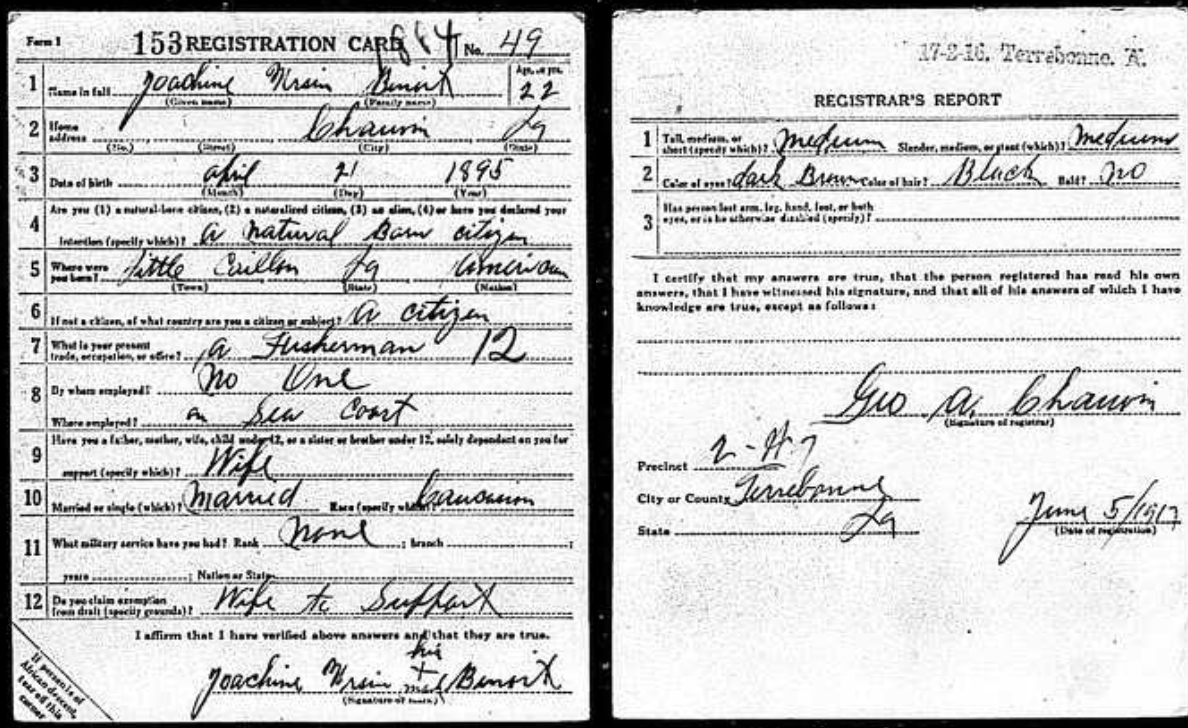 Form 1 153 REGISTRATION CARD 184 No. 49
1 Name in full Joachine Ursin Benoit Age, in yrs. 22
(Given name) (Family name)
2 Home address Chauvin La
(No.) (Street) (City) (State)
3 Date of birth april 21 1895
(Month) (Day) (Year)
4 Are you (1) a natural-born citizen, (2) a naturalized citizen, (3) an alien, (4) or have you declared your
intention (specify which)? a natural Born citizen
5 Where were you born? Little Caillou La American
(Town) (State) (Nation)
6 If not a citizen, of what country are you a citizen or subject? a citizen
7 What is your present trade, occupation, or office? a Fusherman 12
8 By whom employed? No One
Where employed? on Sea Coast
9 Have you a father, mother, wife, child under 12, or a sister or brother under 12, solely dependent on you for
support (specify which)? Wife
10 Married or single (which)? Married Race (specify which)?
11 What military service have you had? Rank None ; branch ;
years ; Nation or State
12 Do you claim exemption from draft (specify grounds)? Wife to Support
I affirm that I have verified above answers and that they are true.
his
Joachine Ursin + Benoit
mark
(Signature or mark)
If person is of
African descent,
tear off this
corner
17-2-16. Terrebonne. A.
REGISTRAR'S REPORT
1 Tall, medium, or short (specify which)? Medium Slender, medium, or stout (which)? Medium
2 Color of eyes? dark Brown Color of hair? Black Bald? No
3 Has person lost arm, leg, hand, foot, or both
eyes, or is he otherwise disabled (specify)?
I certify that my answers are true, that the person registered has read his own
answers, that I have witnessed his signature, and that all of his answers of which I have
knowledge are true, except as follows:
Geo A. Chauvin
(Signature of registrar)
Precinct
City or County Terrebonne
State La
June 5/1917
(Date of registration)